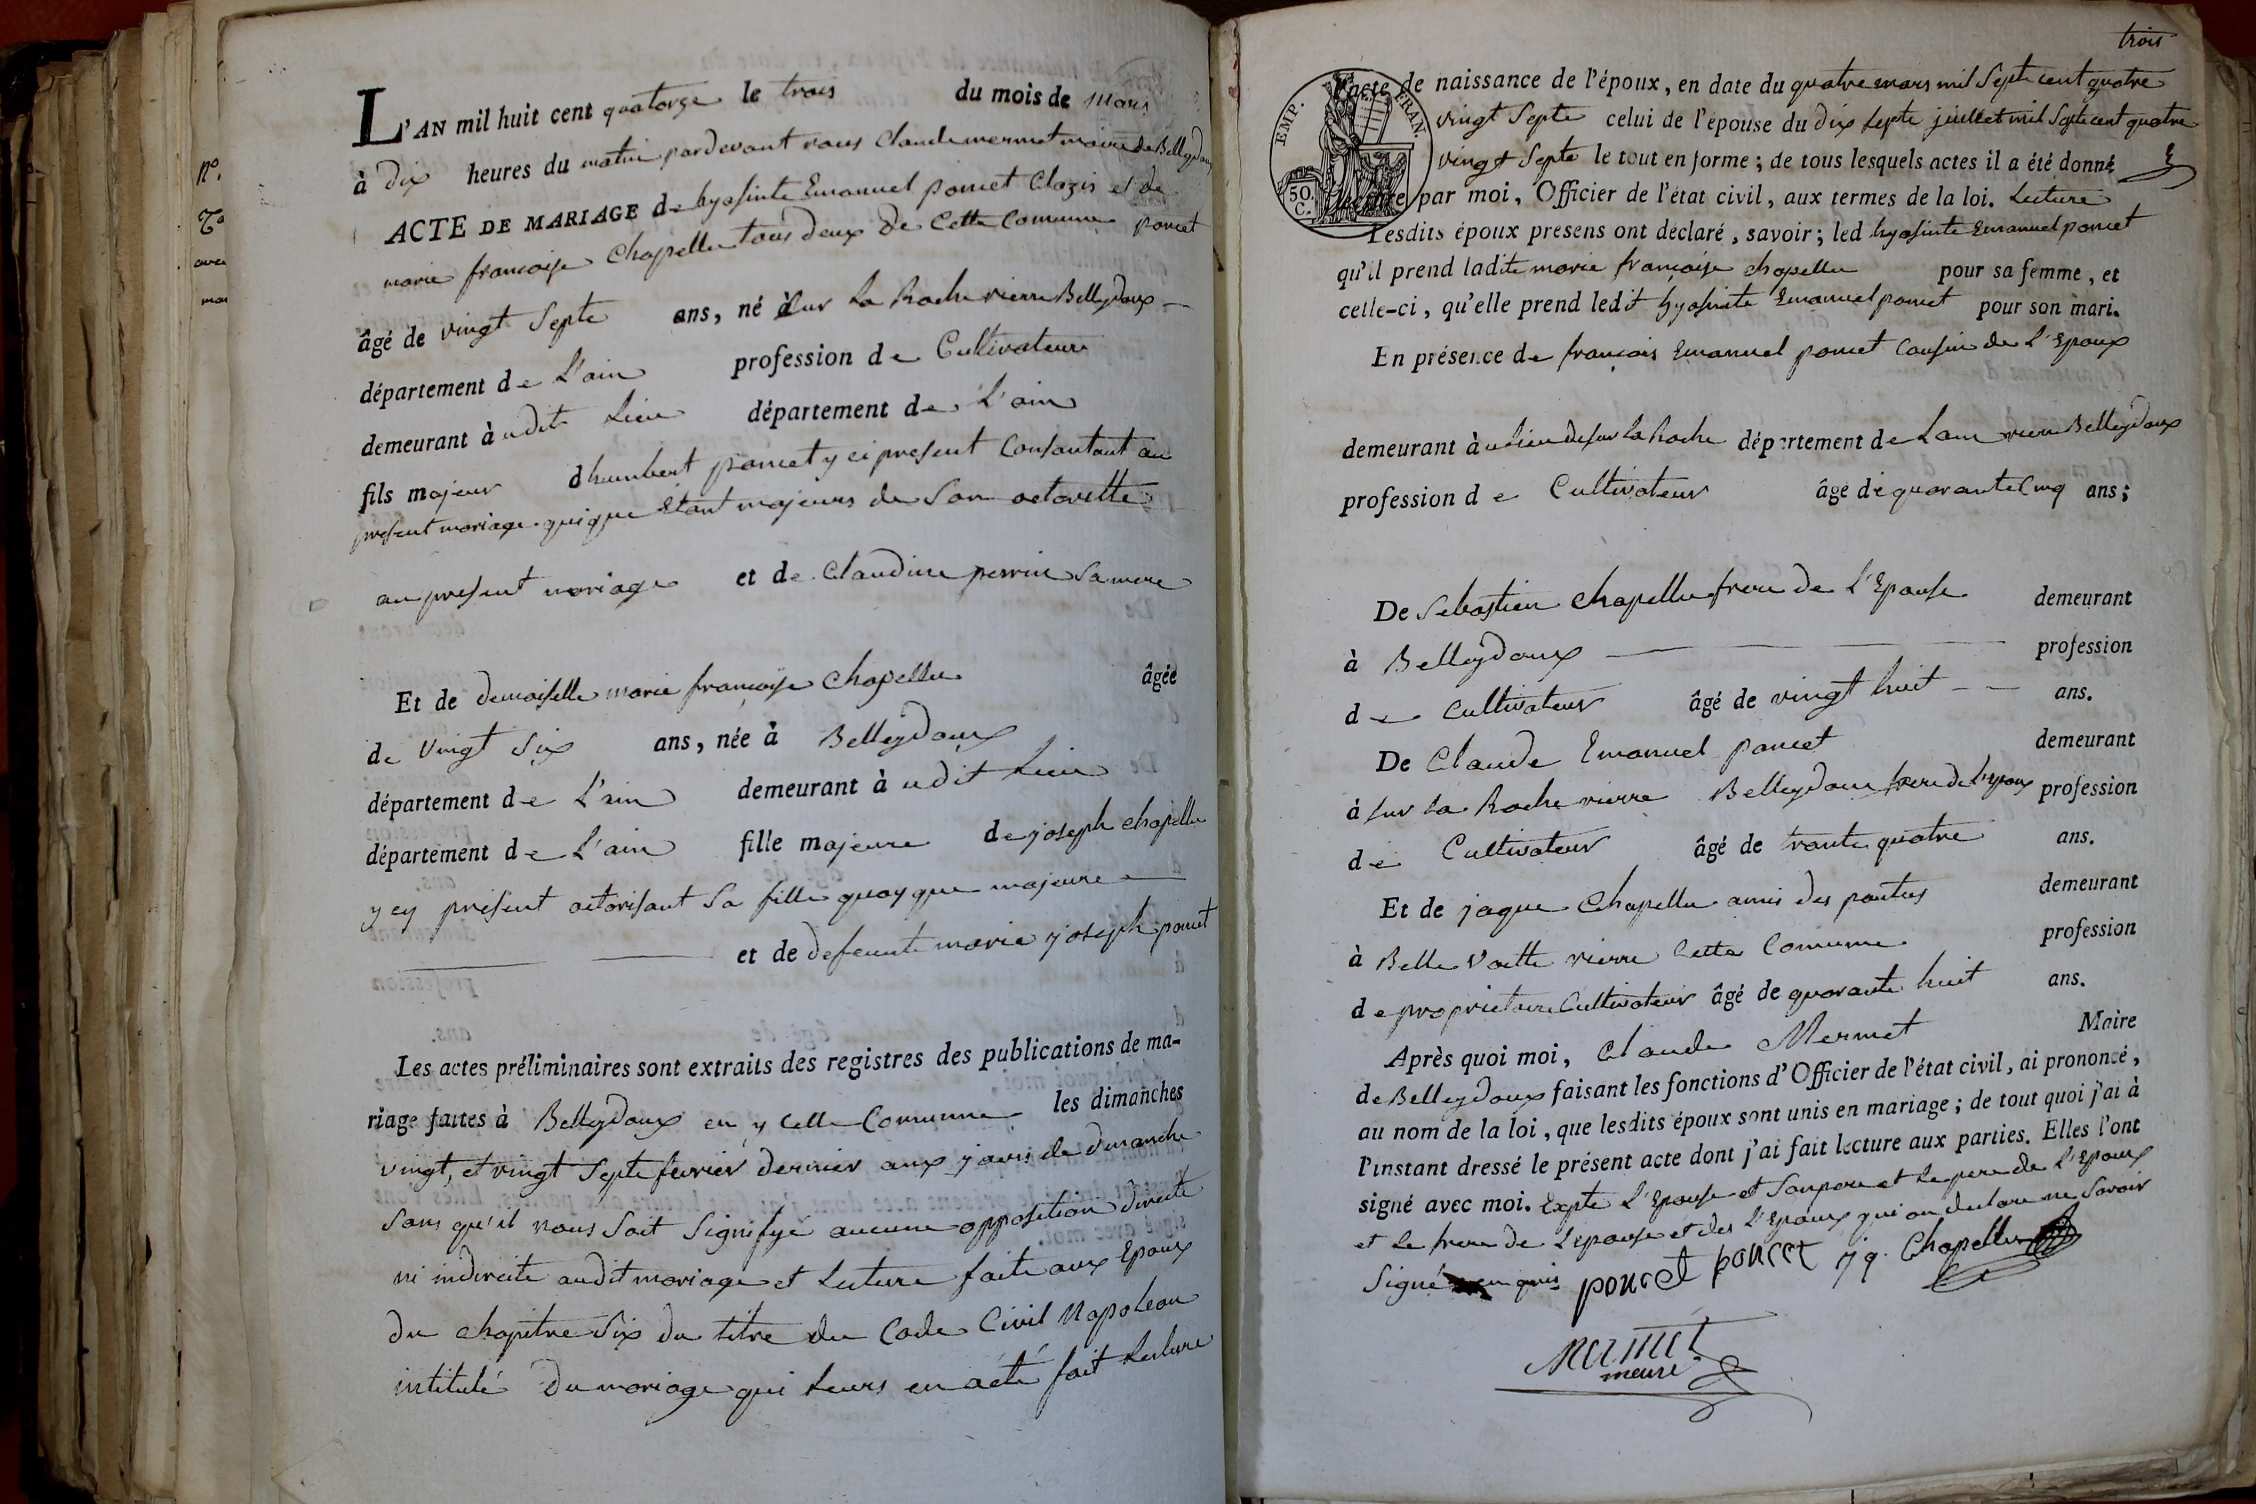 nº.
L'AN mil huit cent quatorze le trois du mois de mars
à dix heures du matin pardevant nous Claude mermet maire de Belleydoux
ACTE DE MARIAGE de hyasinte Emanuel poncet Clozis et de
marie francoise Chapellu tous deux de Cette Comune poncet
âgé de vingt Septe ans, né à Sur la Roche rierre Belleydoux
département de L'ain profession de Cultivateur
demeurant à udit Lieu département de L'ain
fils majeur dhumbert poncet y ci present Consantant au
present mariage quique Etant majeurs de Son
au present mariage et de Claudine perrin Sa mere
Et de demoiselle marie françoise Chapellu âgée
de Vingt Six ans, née à Belleydoux
département de L'ain demeurant à udit Lieu
département de L'ain fille majeure de joseph chapellu
y cy présent actorisant Sa fille quoyque majeure
et de defeunte marie joseph poncet
Les actes préliminaires sont extraits des registres des publications de ma-
riage faites à Belleydoux en y celle Comune les dimanches
vingt, et vingt Septe fevrier dernier aux jours de dimanche
Sans qu'il nous Soit Signifyé aucune opposition directe
ni indirecte audit mariage et Lecture faite aux Epoux
du chapitre Six du titre du Code Civil Napoleon
intitulé du mariage qui Leurs en acté fait Lecture
trois
EMP. FRAN
50. C.
L'acte de naissance de l'époux, en date du quatre mars mil Septe cent quatre
vingt Septe celui de l'épouse du dix Septe juillet mil Septe cent quatre
vingt Septe le tout en forme ; de tous lesquels actes il a été donné
lecture par moi, Officier de l'état civil, aux termes de la loi. Lecture
Lesdits époux présens ont déclaré, savoir ; led hyasinte Emanuel poncet
qu'il prend ladite marie françoise chapellu pour sa femme, et
celle-ci, qu'elle prend ledit hyasinte Emanuel poncet pour son mari.
En présence de françois Emanuel poncet Cousin de L'Epoux
demeurant à u lieu de sur la Roche département de Lain rierre Belleydoux
profession de Cultivateur âgé de quarante Cinq ans ;
De Sebastien Chapellu frere de L'Epouse demeurant
à Belleydoux profession
de Cultivateur âgé de vingt huit ans.
De Claude Emanuel poncet demeurant
à sur la Roche rierre Belleydoux frere de L'Epoux profession
de Cultivateur âgé de trante quatre ans.
Et de jaque Chapellu amis des parties demeurant
à Belle Voette rierre Cette Comune profession
de proprietaire Cultivateur âgé de quarante huit ans.
Après quoi moi, Claude Mermet Maire
de Belleydoux faisant les fonctions d'Officier de l'état civil, ai prononcé,
au nom de la loi, que lesdits époux sont unis en mariage ; de tout quoi j'ai à
l'instant dressé le présent acte dont j'ai fait lecture aux parties. Elles l'ont
signé avec moi. Expte L'Epouse et Son pere et Le pere de L'Epoux
et Le frere de Lepouse et des L'Epoux qui on declare ne Savoir
Signé poncet poncet jq. Chapellu
Mermet
meire